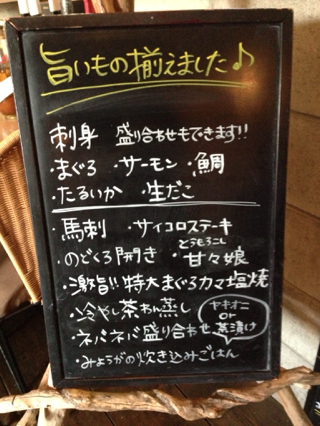 旨いもの揃えました♪
刺身 盛り合わせもできます!!
・まぐろ ・サーモン ・鯛
・たるいか ・生だこ
・馬刺 ・サイコロステーキ
とうもろこし
・のどくろ開き ・甘々娘
・激旨!! 特大まぐろカマ塩焼
・冷やし茶わん蒸し
・ネバネバ盛り合わせ
ヤキオニ
or
茶漬け
・みょうがの炊き込みごはん